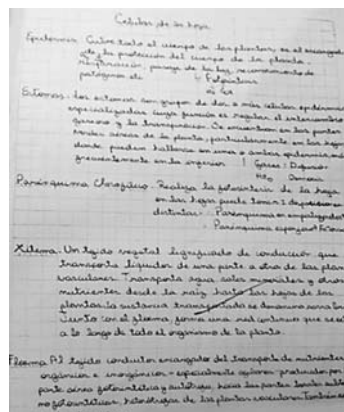 Celulas de la hoja
Epidermis. Cubre todo el cuerpo de las plantas, es el encargado
de la protección del cuerpo de la planta.
, pasaje de la luz, reconocimiento de
patógenos etc
Fotosintesis
Estomas. los estomas son grupos de dos o más células epidérmicas
especializadas cuya función es regular el intercambio
gaseoso y la transpiración. Se encuentran en las partes
verdes aéreas de la planta, particularmente en las hojas
donde pueden hallarse en una o ambas epidermis, más
frecuentemente en la inferior Gases: Difusión
Parénquima Clorofílico. Realiza la fotosintesis de la hoja
en las hojas puede tomar 2 disposiciones
distintas: . Parénquima en empalizada
. Parénquima esponjoso
Xilema. Un tejido vegetal lignificado de conducción que
transporta líquidos de una parte a otra de las plantas
vasculares. Transporta agua, sales minerales y otros
nutrientes desde la raíz hasta las hojas de las
plantas. la sustancia transportada se denomina savia
Junto con el floema, forma una red continua que se
a lo largo de todo el organismo de la planta.
Floema Al tejido conductor encargado del transporte de nutrientes
orgánicos e inorgánicos - especialmente azúcares - producidos por
parte aérea fotosintética y autótrofa, hacia las partes
no fotosintéticas, heterótrofas de las plantas vasculares. También